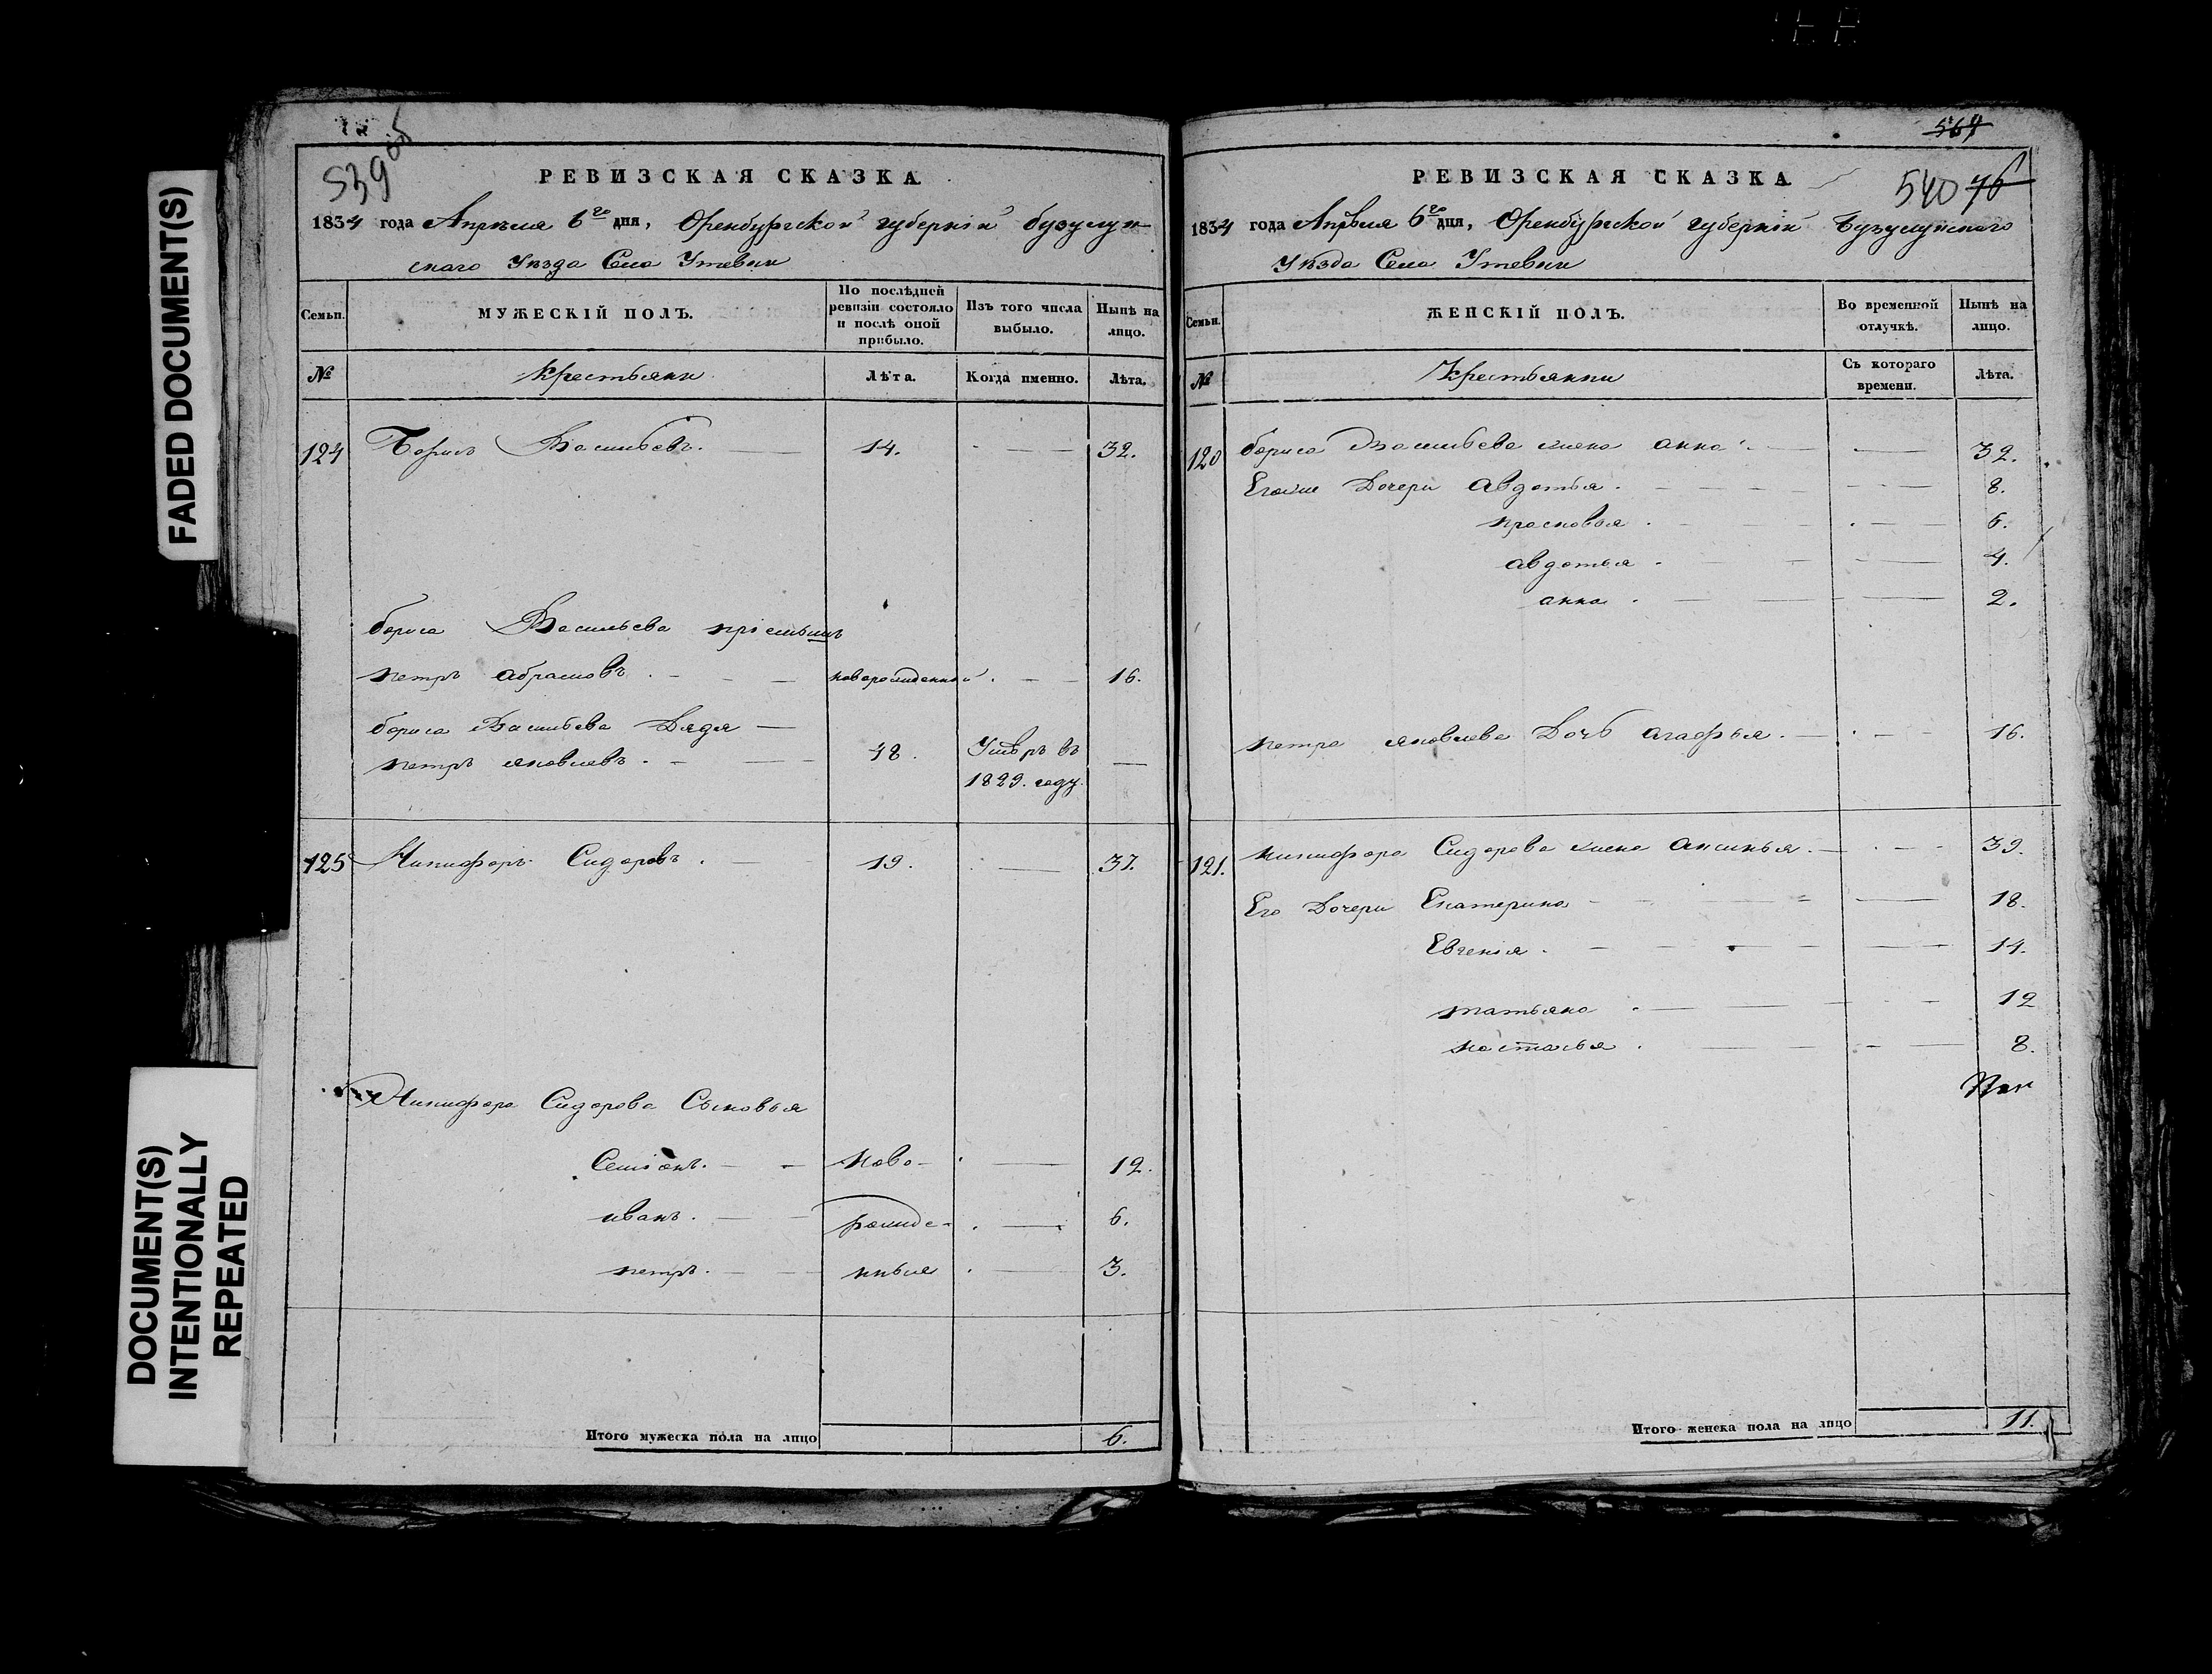 FADED DOCUMENT(S)
DOCUMENT(S)
INTENTIONALLY
REPEATED
539 об
РЕВИЗСКАЯ СКАЗКА
1834 года Апреля 6го дня, Оренбургской губерніи бузулук-
скаго Уѣзда Села Утевки
Семьи.
МУЖЕСКІЙ ПОЛЪ.
По послѣдней
ревизіи состояло
и послѣ оной
прибыло.
Изъ того числа
выбыло.
Нынѣ на
лицо.
№
крестьяни
Лѣта.
Когда именно.
Лѣта.
124 Борисъ Васильевъ. 14. 32.
бориса Васильева пріемышъ
петръ абрамовъ. новорожденной. 16.
бориса Васильева Дядя
петръ яковлевъ. 48. Умѣръ въ
1829. году.
125 Никифоръ Сидоровъ. 19. 37.
Никифора Сидорова Сыновья
Семіонъ. Ново- 12.
иванъ. рожде- 6.
петръ. нныя 3.
Итого мужеска пола на лицо 6.
564
540 76
РЕВИЗСКАЯ СКАЗКА
1834 года Апрѣля 6го дня, Оренбургской губерніи Бузулукскаго
Уѣзда Села Утевки
Семьи.
ЖЕНСКІЙ ПОЛЪ.
Во временной
отлучкѣ.
Нынѣ на
лицо.
№
Крестьянки
Съ котораго
времени.
Лѣта.
120 бориса Васильева жена анна 32.
Егоже Дочери авдотья. 8.
прасковья. 6.
авдотья. 4.
анна. 2.
петра яковлева Дочь агафья. 16.
121. никифора Сидорова жена аксинья. 39.
Его Дочери Екатерина 18.
Евгенія. 14.
татьяна. 12
настасья. 8.
Итого женска пола на лицо 11.